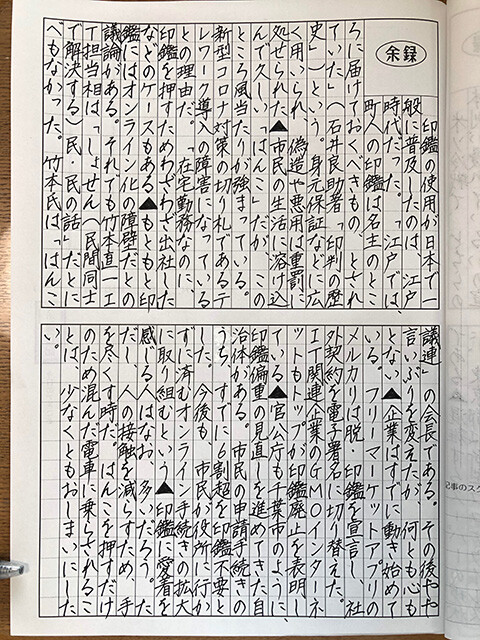 余録
印鑑の使用が日本で一
般に普及したのは、江戸
時代だった。「江戸では、
町人の印鑑は名主のとこ
ろに届けておくべきもの、とされ
ていた」(石井良助著「印判の歴
史」)という。身元保証などに広
く用いられ、偽造や悪用は重罪に
処せられた▲市民の生活に溶け込
んで久しい「はんこ」だが、この
ところ風当たりが強まっている。
新型コロナ対策の切り札であるテ
レワーク導入の障害になっている
との理由だ。「在宅勤務なのに、
印鑑を押すためわざわざ出社した
などのケースもある▲もともと印
鑑にはオンライン化の障壁だとの
議論がある。それでも竹本直一IT
担当相は「しょせん(民間同士
で解決する)民・民の話」だとに
べもなかった。竹本氏は「はんこ
議連」の会長である。その後やや
言いぶりを変えたが、何とも心も
とない▲企業はすでに動き始めて
いる。フリーマーケットアプリの
メルカリは脱・印鑑を宣言し、社
外契約を電子署名に切り替えた。
IT関連企業のGMOインターネ
ットもトップが印鑑廃止を表明し
ている▲官公庁も千葉市のように、
印鑑偏重の見直しを進めてきた自
治体がある。市民の申請手続きの
うち、すでに6割超を印鑑不要と
した。今後も、市民が役所に行か
ずに済むオンライン手続きの拡大
に取り組むという▲印鑑に愛着を
感じる人はなお、多いだろう。た
だし、人の接触を減らすため、手
を尽くす時だ。はんこを押すだけ
のため混んだ電車に乗らされるこ
とは、少なくともおしまいにした
い。
記事のスク